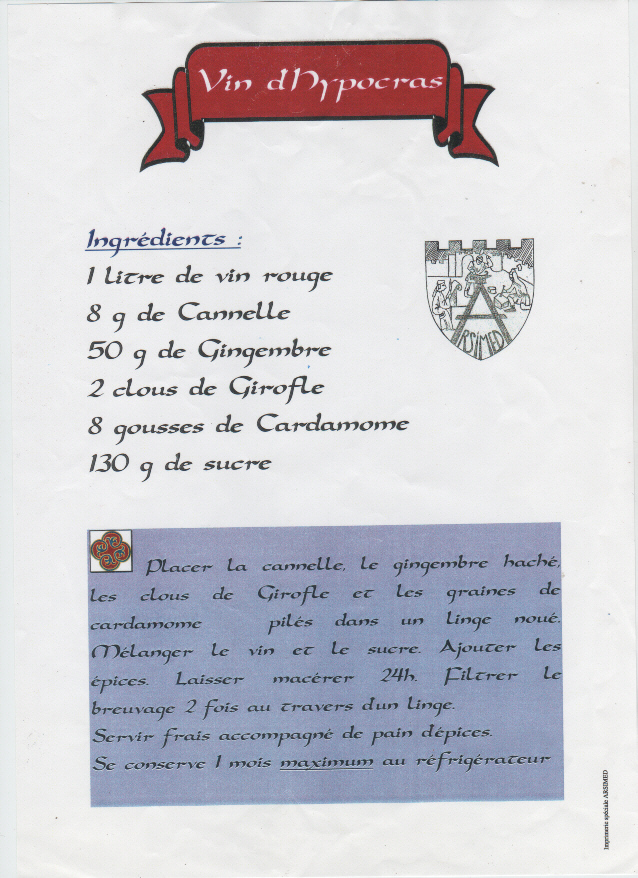 Vin d'Hypocras
Ingrédients :
1 litre de vin rouge
8 g de Cannelle
50 g de Gingembre
2 clous de Girofle
8 gousses de Cardamome
130 g de sucre
ARSIMED
Placer la cannelle, le gingembre haché,
les clous de Girofle et les graines de
cardamome pilés dans un linge noué.
Mélanger le vin et le sucre. Ajouter les
épices. Laisser macérer 24h. Filtrer le
breuvage 2 fois au travers d'un linge.
Servir frais accompagné de pain d'épices.
Se conserve 1 mois maximum au réfrigérateur
Imprimerie spéciale ARSIMED